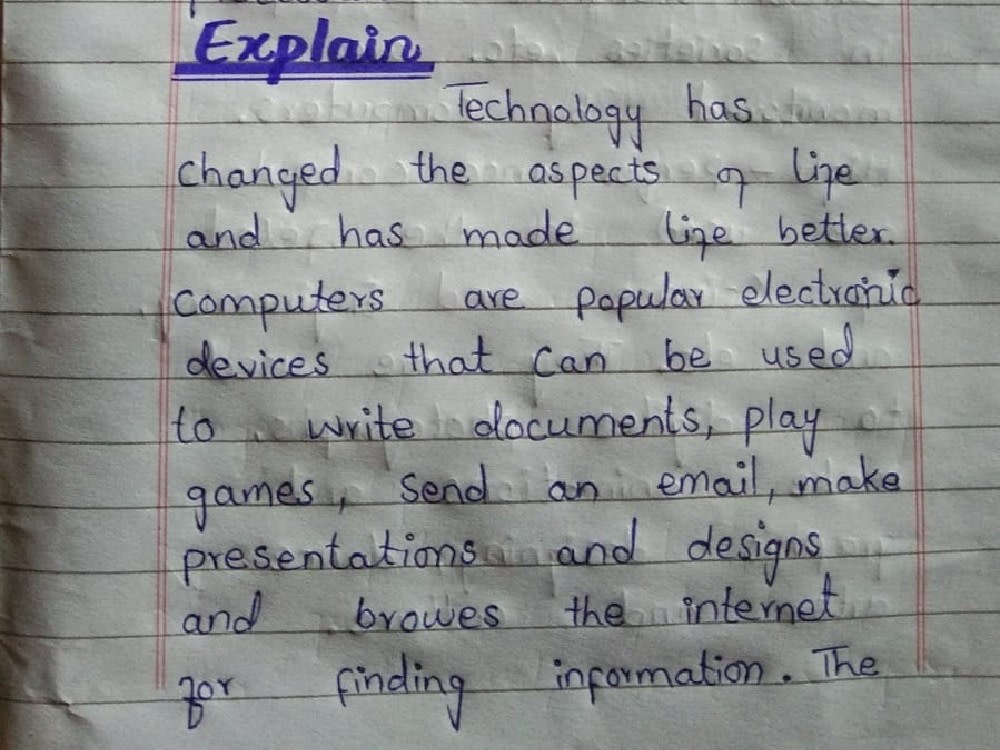 Explain
Technology has
changed the aspects of life
and has made life better.
computers are popular electronic
devices that can be used
to write documents, play
games, send an email, make
presentations and designs
and browes the internet
for finding information. The